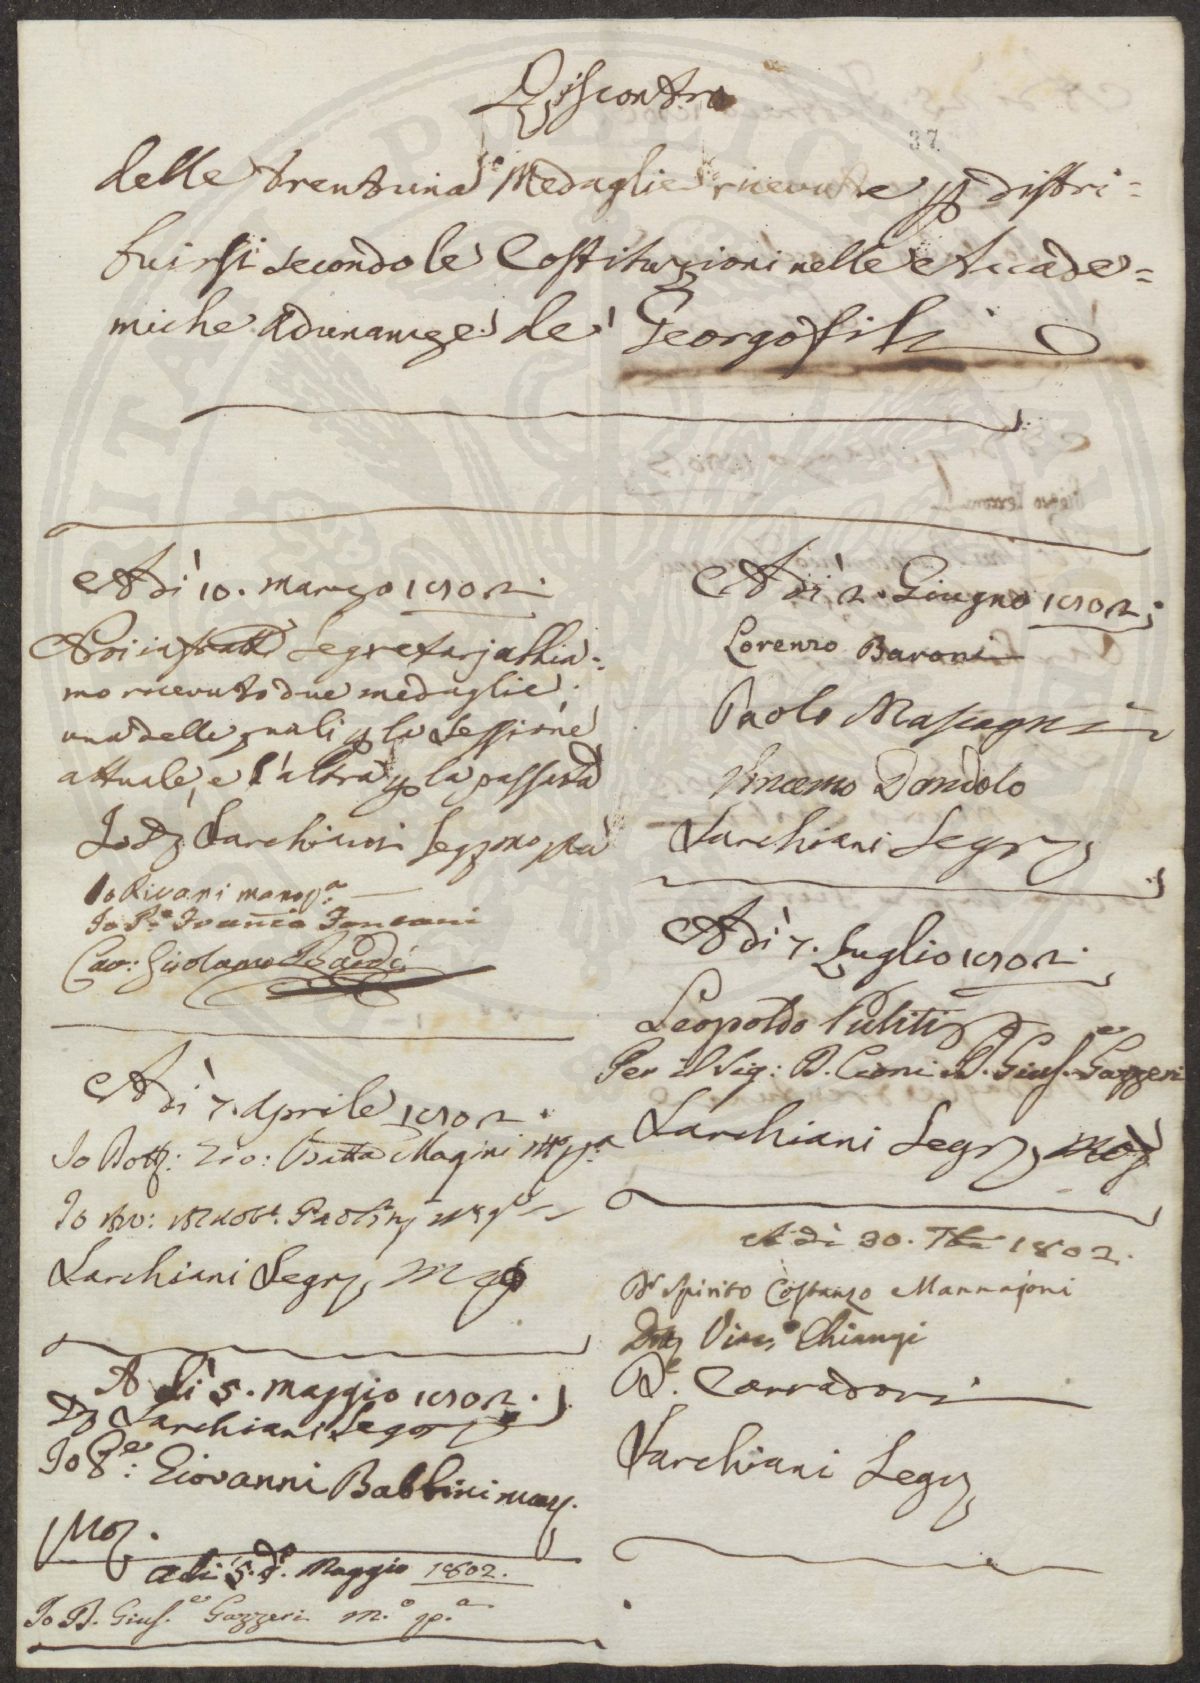 Riscontro
37
delle trentuna Medaglie ricevute p distri=
buirsi secondo le Costituzioni nelle Accade=
miche Adunanze de' Georgofili
Adì 10. marzo 1802
Noi infratti Segretarj abbia=
mo ricevuto due medaglie
una delle quali p la Sessione
attuale, e l'altra p la passata
Io D Sarchiani Seg mo ppa
Io Rivani mano p.a
Io P.e Franco Fontani
Cav: Girolamo Bardi
Adì 7. Aprile 1802
Io Dott: Gio: Batta Magini
Io
Sarchiani Seg
A dì 5. Maggio 1802.
D Sarchiani Seg
Io P.e: Giovanni Babbini
adi 5. do. Maggio 1802.
Io D. Gius.e Gazzeri m.o p.a
Adì 2. Giugno 1802
Lorenzo Baroni
Paolo Mascagni
Vincenzo Dandolo
Sarchiani Seg
Adì 7. Luglio 1802
Leopoldo Puliti
Per il Sig: D. Cioni D. Gius.e Gazzeri
Sarchiani Seg
A dì 30. 7bre 1802.
Dr Spirito Costanzo Mannajoni
Dott Vinc.o Chiarugi
Dr. Carradori
Sarchiani Seg